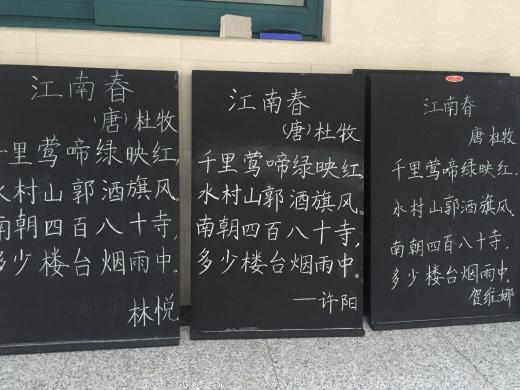 江南春
(唐)杜牧
千里莺啼绿映红,
水村山郭酒旗风。
南朝四百八十寺,
多少楼台烟雨中。
林悦
江南春
(唐)杜牧
千里莺啼绿映红,
水村山郭酒旗风。
南朝四百八十寺,
多少楼台烟雨中。
——许阳
江南春
唐 杜牧
千里莺啼绿映红,
水村山郭酒旗风.
南朝四百八十寺.
多少楼台烟雨中。
贺维娜